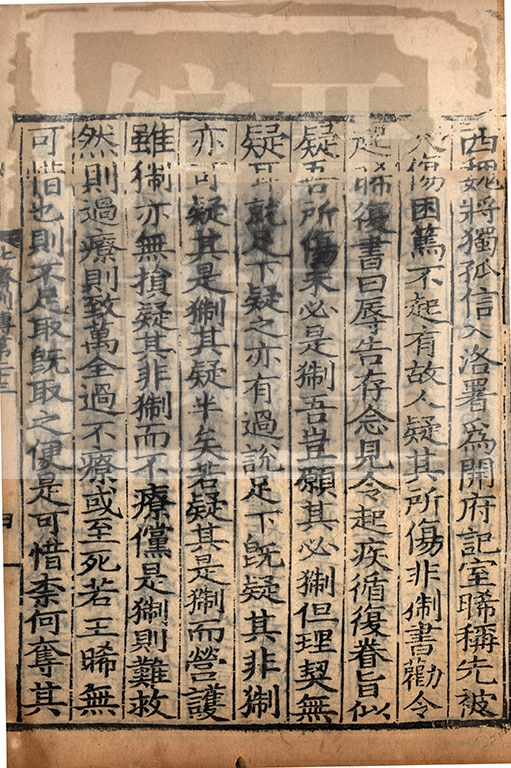 西魏將獨孤信入洛署爲開府記室晞稱先被
犬傷困篤不起有故人疑其所傷非猘書勸令
晞復書曰辱告存念見令起疾循復眷旨似
疑吾所傷未必是猘吾豈願其必猘但理契無
疑耳就足下疑之亦有過說足下旣疑其非猘
亦可疑其是猘其疑半矣若疑其是猘而營護
雖猘亦無損疑其非猘而不療儻是猘則難救
然則過療則致萬全過不療或至死若王晞無
可惜也則不足取旣取之便是可惜柰何奪其
北齊列傳第二十三
四